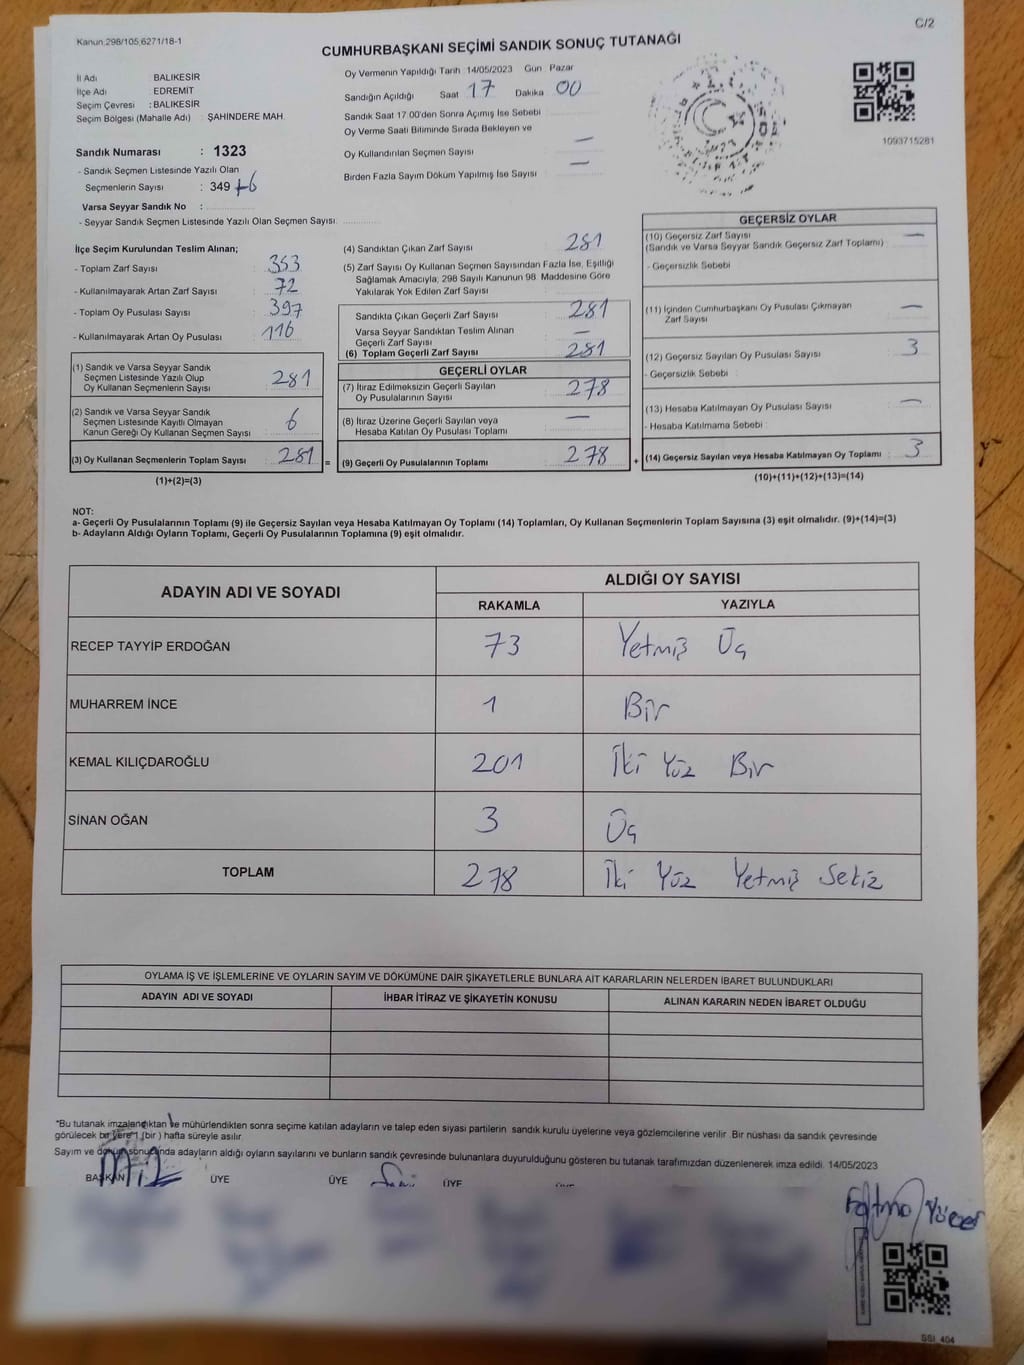 C/2
Kanun 298/105,6271/18-1
CUMHURBAŞKANI SEÇİMİ SANDIK SONUÇ TUTANAĞI
İl Adı BALIKESİR
İlçe Adı EDREMİT
Seçim Çevresi : BALIKESİR
Seçim Bölgesi (Mahalle Adı) : ŞAHİNDERE MAH.
Oy Vermenin Yapıldığı Tarih 14/05/2023 Gün Pazar
Sandığın Açıldığı Saat 17 Dakika 00
Sandık Saat 17.00'den Sonra Açmış İse Sebebi
Oy Verme Saati Bitiminde Sırada Bekleyen ve
Oy Kullandırılan Seçmen Sayısı —
Birden Fazla Sayım Döküm Yapılmış İse Sayısı —
1093715281
Sandık Numarası : 1323
- Sandık Seçmen Listesinde Yazılı Olan
Seçmenlerin Sayısı : 349 +6
Varsa Seyyar Sandık No :
- Seyyar Sandık Seçmen Listesinde Yazılı Olan Seçmen Sayısı:
İlçe Seçim Kurulundan Teslim Alınan;
- Toplam Zarf Sayısı 353
- Kullanılmayarak Artan Zarf Sayısı 72
- Toplam Oy Pusulası Sayısı 397
- Kullanılmayarak Artan Oy Pusulası 116
(1) Sandık ve Varsa Seyyar Sandık
Seçmen Listesinde Yazılı Olup
Oy Kullanan Seçmenlerin Sayısı 281
(2) Sandık ve Varsa Seyyar Sandık
Seçmen Listesinde Kayıtlı Olmayan
Kanun Gereği Oy Kullanan Seçmen Sayısı 6
(3) Oy Kullanan Seçmenlerin Toplam Sayısı 281 =
(1)+(2)=(3)
(4) Sandıktan Çıkan Zarf Sayısı 281
(5) Zarf Sayısı Oy Kullanan Seçmen Sayısından Fazla İse, Eşitliği
Sağlamak Amacıyla, 298 Sayılı Kanunun 98. Maddesine Göre
Yakılarak Yok Edilen Zarf Sayısı
Sandıkta Çıkan Geçerli Zarf Sayısı 281
Varsa Seyyar Sandıktan Teslim Alınan
Geçerli Zarf Sayısı —
(6) Toplam Geçerli Zarf Sayısı 281
GEÇERLİ OYLAR
(7) İtiraz Edilmeksizin Geçerli Sayılan
Oy Pusulalarının Sayısı 278
(8) İtiraz Üzerine Geçerli Sayılan veya
Hesaba Katılan Oy Pusulası Toplamı —
(9) Geçerli Oy Pusulalarının Toplamı 278 +
GEÇERSİZ OYLAR
(10) Geçersiz Zarf Sayısı —
(Sandık ve Varsa Seyyar Sandık Geçersiz Zarf Toplamı)
- Geçersizlik Sebebi
(11) İçinden Cumhurbaşkanı Oy Pusulası Çıkmayan
Zarf Sayısı —
(12) Geçersiz Sayılan Oy Pusulası Sayısı 3
- Geçersizlik Sebebi :
(13) Hesaba Katılmayan Oy Pusulası Sayısı —
- Hesaba Katılmama Sebebi :
(14) Geçersiz Sayılan veya Hesaba Katılmayan Oy Toplamı : 3
(10)+(11)+(12)+(13)=(14)
NOT:
a- Geçerli Oy Pusulalarının Toplamı (9) ile Geçersiz Sayılan veya Hesaba Katılmayan Oy Toplamı (14) Toplamları, Oy Kullanan Seçmenlerin Toplam Sayısına (3) eşit olmalıdır. (9)+(14)=(3)
b- Adayların Aldığı Oyların Toplamı, Geçerli Oy Pusulalarının Toplamına (9) eşit olmalıdır.
ADAYIN ADI VE SOYADI
ALDIĞI OY SAYISI
RAKAMLA YAZIYLA
RECEP TAYYİP ERDOĞAN 73 Yetmiş Üç
MUHARREM İNCE 1 Bir
KEMAL KILIÇDAROĞLU 201 İki Yüz Bir
SİNAN OĞAN 3 Üç
TOPLAM 278 İki Yüz Yetmiş Sekiz
OYLAMA İŞ VE İŞLEMLERİNE VE OYLARIN SAYIM VE DÖKÜMÜNE DAİR ŞİKAYETLERLE BUNLARA AİT KARARLARIN NELERDEN İBARET BULUNDUKLARI
ADAYIN ADI VE SOYADI İHBAR İTİRAZ VE ŞİKAYETİN KONUSU ALINAN KARARIN NEDEN İBARET OLDUĞU
"Bu tutanak imzalandıktan ve mühürlendikten sonra seçime katılan adayların ve talep eden siyasi partilerin sandık kurulu üyelerine veya gözlemcilerine verilir. Bir nüshası da sandık çevresinde
görülecek bir yere 1 (bir) hafta süreyle asılır.
Sayım ve döküm sonunda adayların aldığı oyların sayılarını ve bunların sandık çevresinde bulunanlara duyurulduğunu gösteren bu tutanak tarafımızdan düzenlenerek imza edildi. 14/05/2023
BAŞKAN ÜYE ÜYE ÜYE
Fatma Yücel
SSI 404